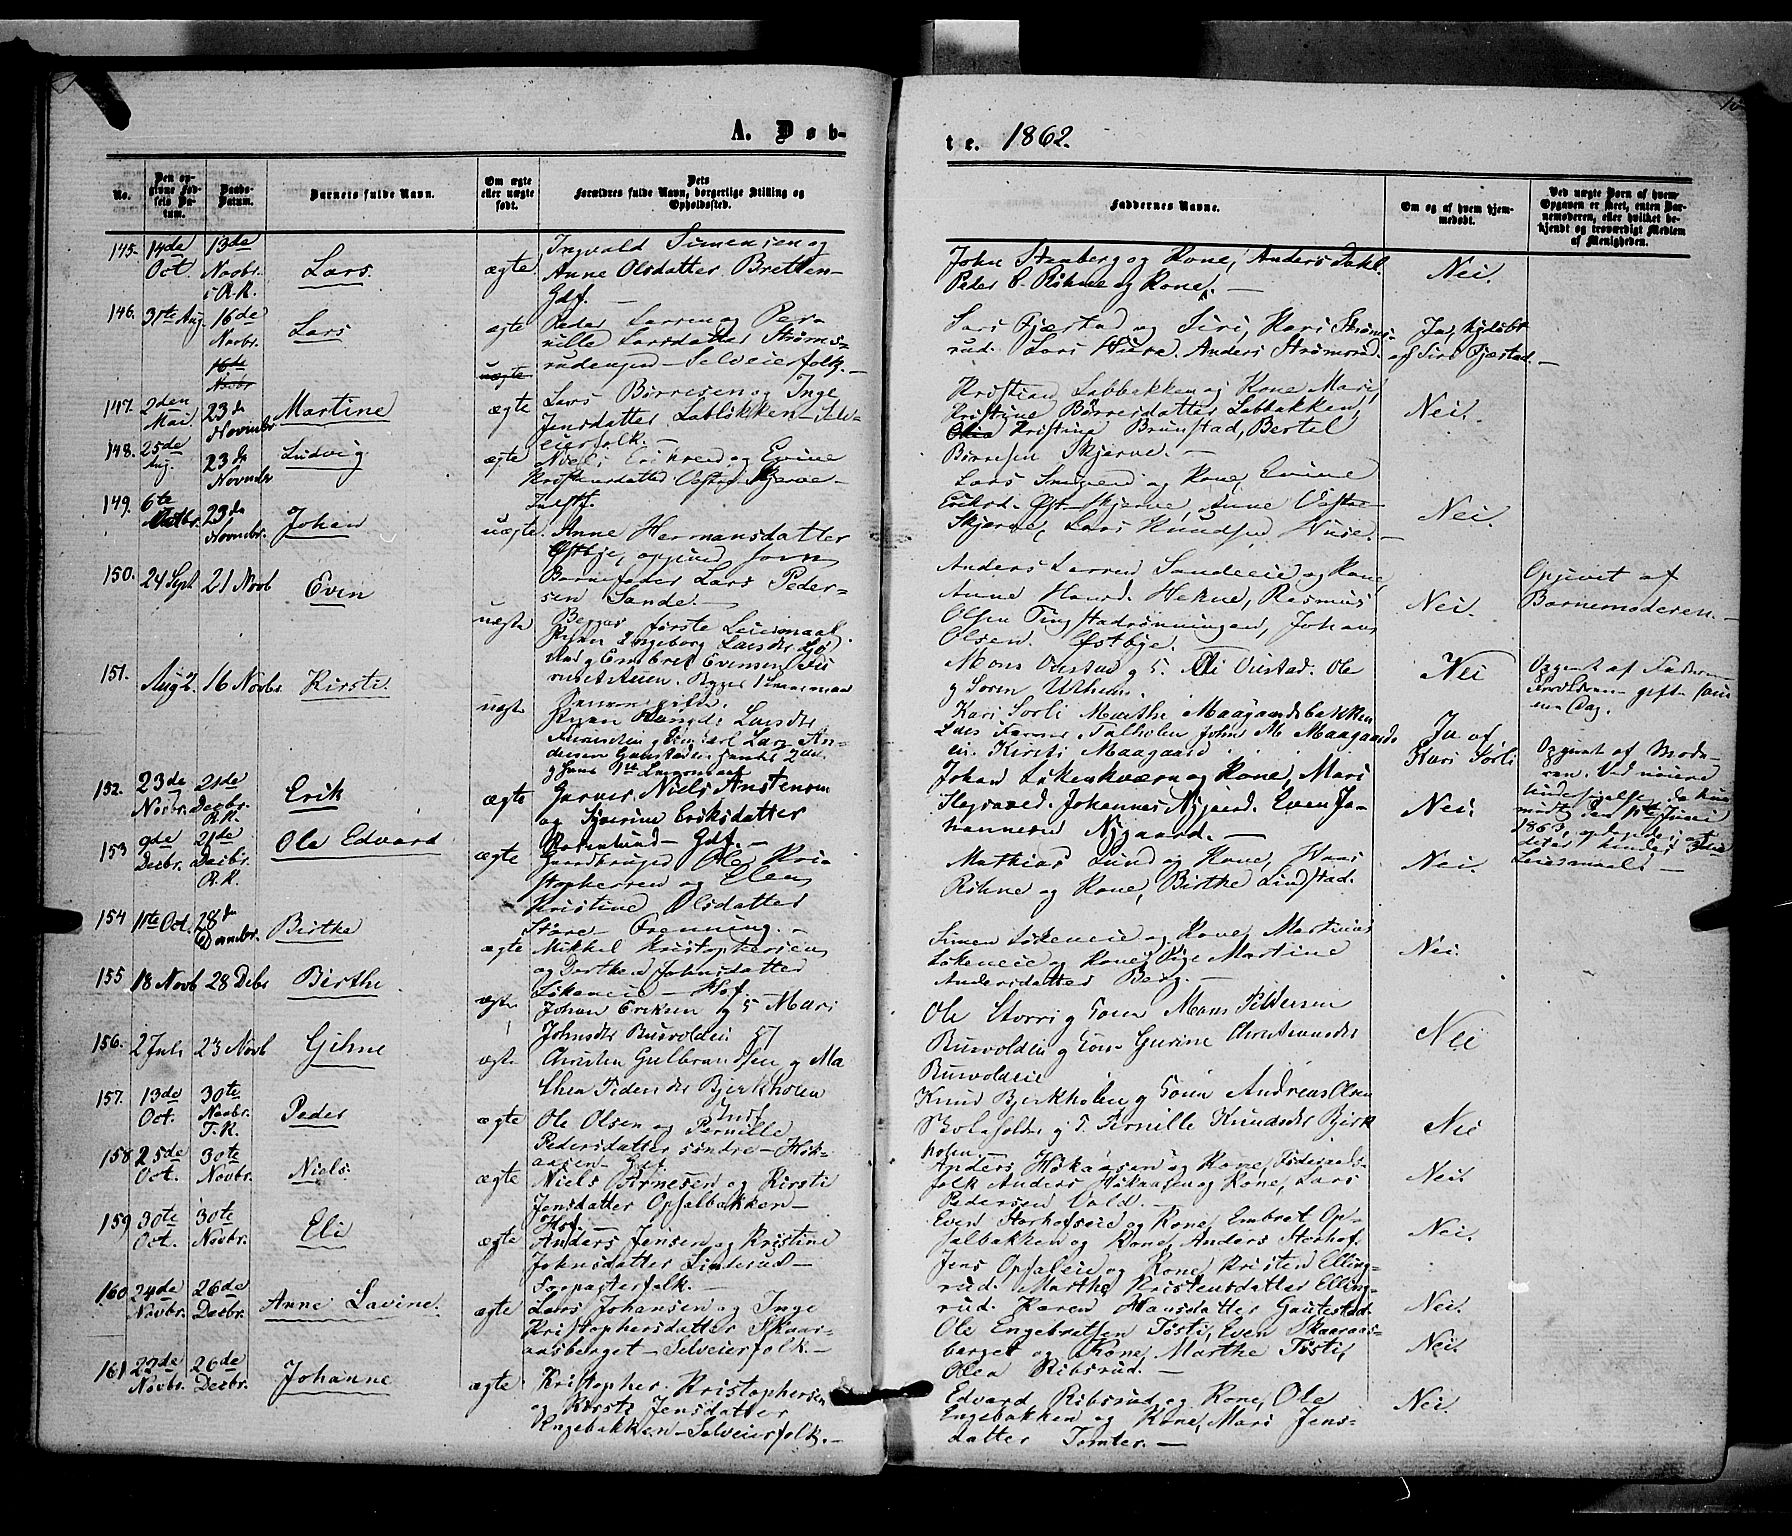 A. Døb-
te. 1862.
No.
Den op-
givne Fød-
sels Da-
tum.
Daabs-
Datum.
Barnets fulde Navn.
Om ægte
eller uægte
født.
Dets
Forældres fulde Navn, borgerlige Stilling og
Opholdssted.
Faddernes Navne.
Om og af hvem hjem-
medøbt.
Ved uægte Børn af hvem
Opgaven er skeet, enten Bar-
nemoderen, eller hvilket be-
kjendt og troværdigt Medlem
af Menigheden.
145. 14de 13de
Oct. Novbr. Lars. ægte
i R.K.
Ingvald Simensen og
Anne Olsdatter Bretten-
Gdf. —
John Stenberg og Kone, Anders Dahl
Peder C. Røhne og Kone. —
Nei.
146. 31te Aug. 16de
Novbr. Lars ægte
16te
Novbr uægte
Peder Larsen og Per-
nille Larsdatter Strøms-
rudengen - Selveierfolk. —
Lars Fjæstad og Siri, Kari Strøms-
rud. Lars Hure. Anders Strømsrud.
Ja, hjdøbt
af Siri Fjæstad. —
147. 2den 23de
Mai. Novmbr. Martine ægte
Lars Børresen og Inge
Jensdatter Labbakken - Selv-
eierfolk. —
Kristian Labbakken og Kone, Mari,
Kristine Børresdatter Labbakken,
Kristine Brunstad, Bertel
Børresen Skjerve. —
Nei.
148. 25de 23de
Aug. Novmbr Ludvig ægte
Niels Eriksen og Evine
Kristensdatter Vestre Skjerve -
Lars og Kone, Evine
Eriksd. Øst-Skjerve, Anne Vestre
Skjerve, Lars Knudsen Hure. —
Nei.
149. 6te 23de
Octbr. Novmbr. Johan uægte
Anne Hermansdatter
Østbye, opgivet som
Barnefader Lars Peder-
sen Sande. —
Begges første Leiermaal.
Anders Larsen Sandeeie og Kone,
Anne Hansd. Hekne, Rasmus
Olsen Tingstadrønningen, Johan
Olsen Østbye.
Nei.
Opgivet af
Barnemoderen. —
150. 24 Sept 21 Novb Even uægte
Pigen Ingeborg Larsdr
og Embret Evensen
Begges 1 Leiermaal
Mons Onstad g 5. Eli Onstad. Ole
g Soren Wilhelm.
Nei
151. Aug 2. 16 Novbr. Kirsti uægte
Pigen Larsdr
Lars An-
dersen
Kari Sorli Marthe Maagaardsbakken
John M. Maagaards
ei. Kirsti Maagaard
Ja af
Kari Sorli
Opgivet af Mode-
ren.
152. 23de 21de
Novbr. Decbr. Erik ægte
R.K.
Garver Niels Anstensen
og Syverine Eriksdatter
Rosenlund - Gdf. —
Johan Løkenkværn og Kone, Mari
Johannes Nygaard. Even Jo-
hannesen Nygaard. —
Nei.
153 9de 21de
Decbr. Decbr. Ole Edvard ægte
R.K.
Gaardbruger Ole Kri-
stophersen og Elen
Kristine Olsdatter
Store Frenning. —
Mathias Lund og Kone, Hans
Røhne og Kone, Birthe Lindstad.
Nei.
154 11te Oct. 28de
Decembr. Birthe ægte
Mikkel Kristophersen
og Dorthea Johnsdatter
Løkeneie - Hsf.
Simen Løkeneie og Kone, Martinus
Løkeneie og Kone, Pige Martine
Andersdatter Berg. —
Nei.
155 18 Novb 28 Debr Birthe ægte
Johan Eriksen g 5 Mari
Johnsdr Rusvoldei
Ole Storri g Kone Mons Pedersen
Rusvoldeie g Kone Gurine Christiansdr
Rusvoldeie
Nei
156. 2 Juli 23 Novb Gihne ægte
Christen Gulbrandsen g Ma
thea Pedersdr Bjerkholen
Knud Bjerkholen g Kone Andreas Olsen
g 5 Pernille Knudsdr Bjerk
holen.
Nei
157. 13de 30te
Oct. Novbr. Peder ægte
T.K.
Ole Olsen og Pernille
Pedersdatter søndre - Høk-
aasen - Gdf.
Anders Høkaasen og Kone, Føderaads-
folk Anders Høkaasen og Kone, Lars
Pedersen Vold. —
Nei.
158 25de 30te
Oct. Novbr. Niels. ægte
Niels Arnesen og Kirsti
Jensdatter Opsalbakken -
Hsf. —
Even Storhofseie og Kone, Embret Op-
salbakken og Kone, Anders Storhof.
Nei.
159 30te 30te
Oct. Novbr. Eli ægte
Anders Jensen og Kristine
Johnsdatter Linderud -
Forpagterfolk. —
Jens Opsaleie og Kone, Kristen Elling-
rud. Marthe Kristensdatter Elling-
rud. Karen Hansdatter Gautestad.
Nei.
160 24de 26de
Novbr. Decbr. Anne Lavine. ægte
Lars Johansen og Inge
Kristophersdatter Skaar-
aasberget - Selveierfolk. —
Ole Engebretsen Tøsti, Even Skaaraas-
berget og Kone, Marthe Tøsti,
Olea Ribsrud. —
Nei.
161 22de 26de
Novbr. Decbr. Johanne ægte
Kristopher Kristophersen
og Kirsti Jensdatter
Engebakken - Selveierfolk. —
Edvard Ribsrud og Kone, Ole
Engebakken og Kone, Mari Jens-
datter Tomter. —
Nei.